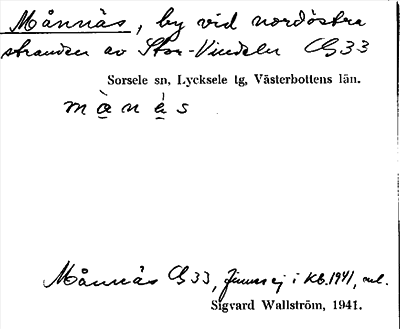 Månnäs, by vid nordöstra
stranden av Stor-Vindeln G33
Sorsele sn, Lycksele tg, Västerbottens län.
mà̱nà̱s
Månnäs G33, finns ej i KB.1941, ml.
Sigvard Wallström, 1941.